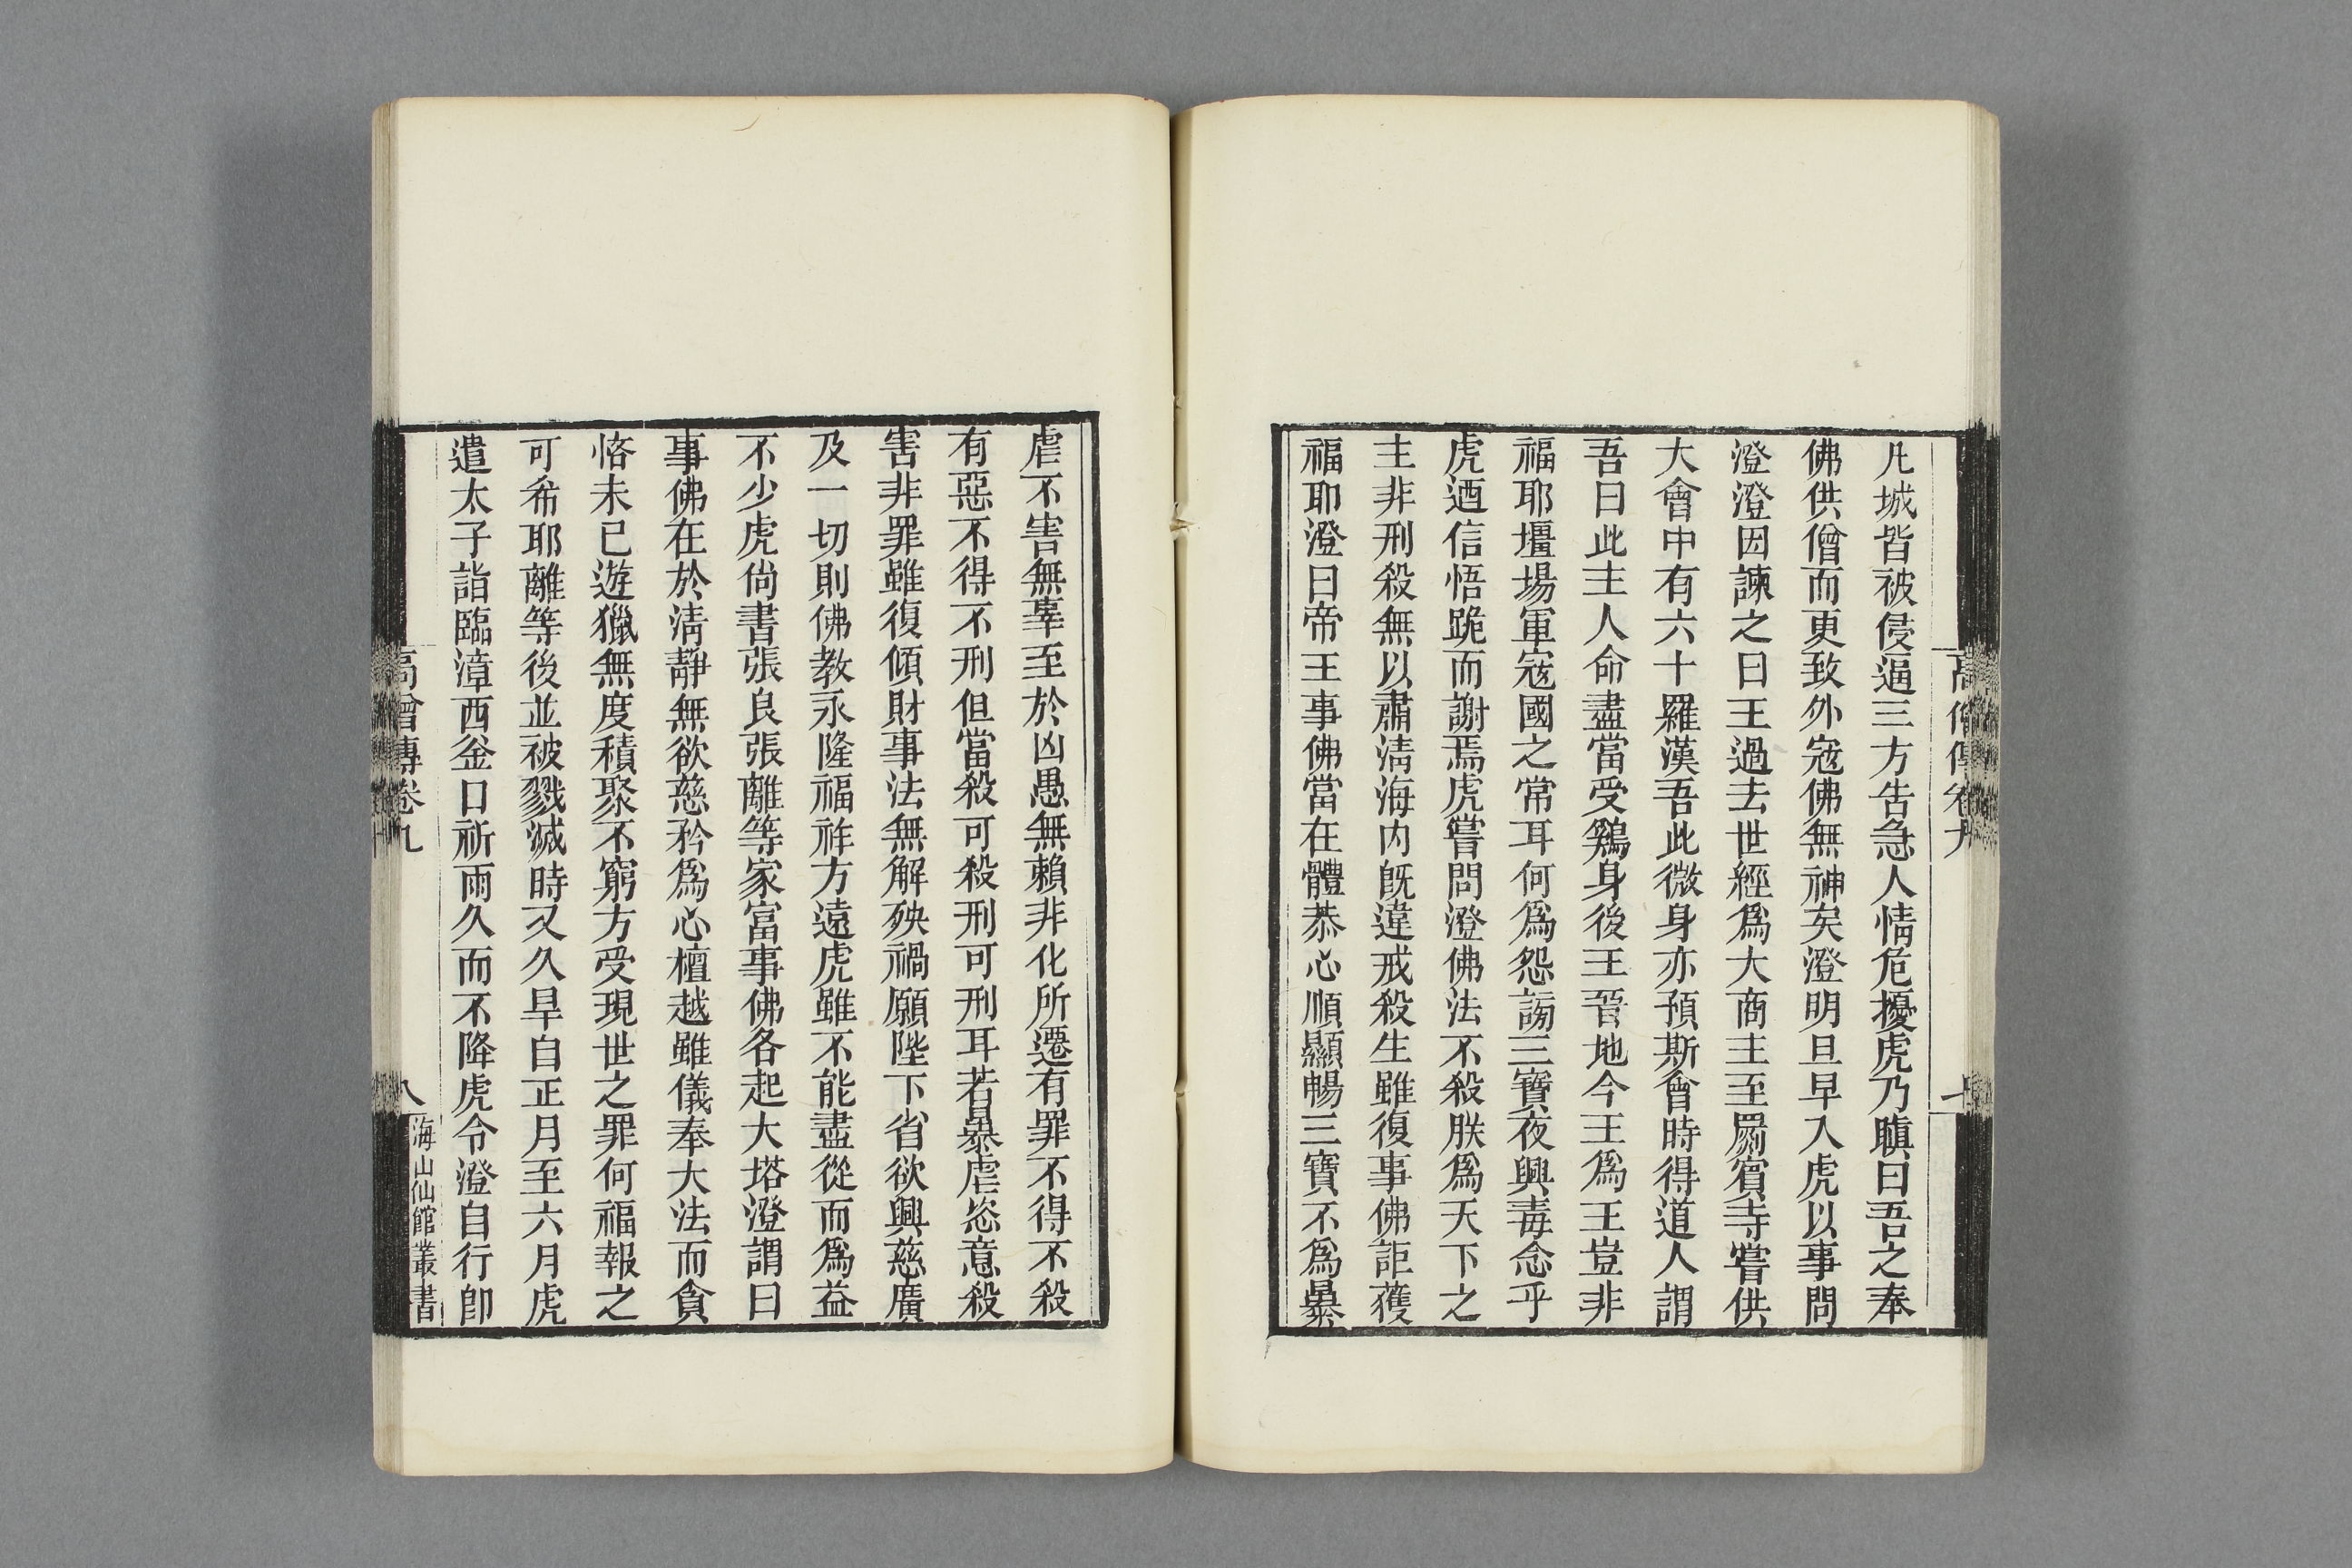 高僧傳卷九
凡城皆被侵逼三方告急人情危擾虎乃瞋曰吾之奉
佛供僧而更致外寇佛無神矣澄明旦早入虎以事問
澄澄因諫之曰王過去世經爲大商主至罽賓寺嘗供
大會中有六十羅漢吾此微身亦預斯會時得道人謂
吾曰此主人命盡當受鷄身後王晉地今王爲王豈非
福耶壃場軍寇國之常耳何爲怨謗三寶夜興毒念乎
虎迺信悟跪而謝焉虎嘗問澄佛法不殺朕爲天下之
主非刑殺無以肅淸海內旣違戒殺生雖復事佛詎獲
福耶澄曰帝王事佛當在體恭心順顯暢三寶不爲暴
虐不害無辜至於凶愚無賴非化所遷有罪不得不殺
有惡不得不刑但當殺可殺刑可刑耳若暴虐恣意殺
害非罪雖復傾財事法無解殃禍願陛下省欲興慈廣
及一切則佛教永隆福祚方遠虎雖不能盡從而爲益
不少虎尙書張良張離等家富事佛各起大塔澄謂曰
事佛在於淸靜無欲慈矜爲心檀越雖儀奉大法而貪
悋未已遊獵無度積聚不窮方受現世之罪何福報之
可希耶離等後並被戮滅時又久旱自正月至六月虎
遣太子詣臨漳西釜口祈雨久而不降虎令澄自行卽
高僧傳卷九
八
海山仙館叢書